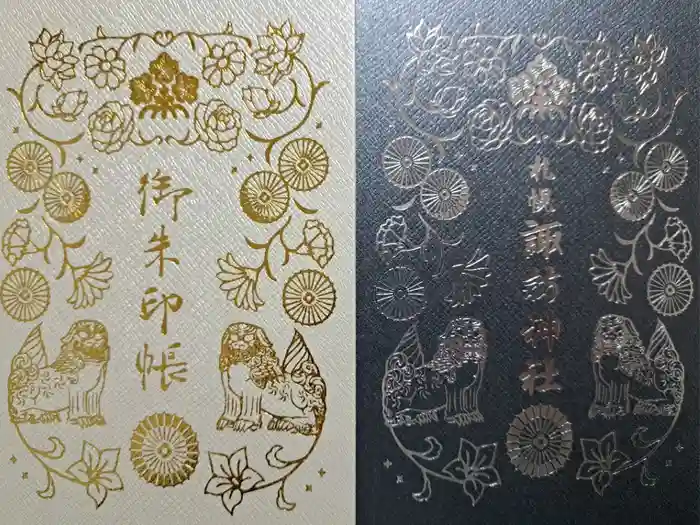 御朱印帳
札幌諏訪神社